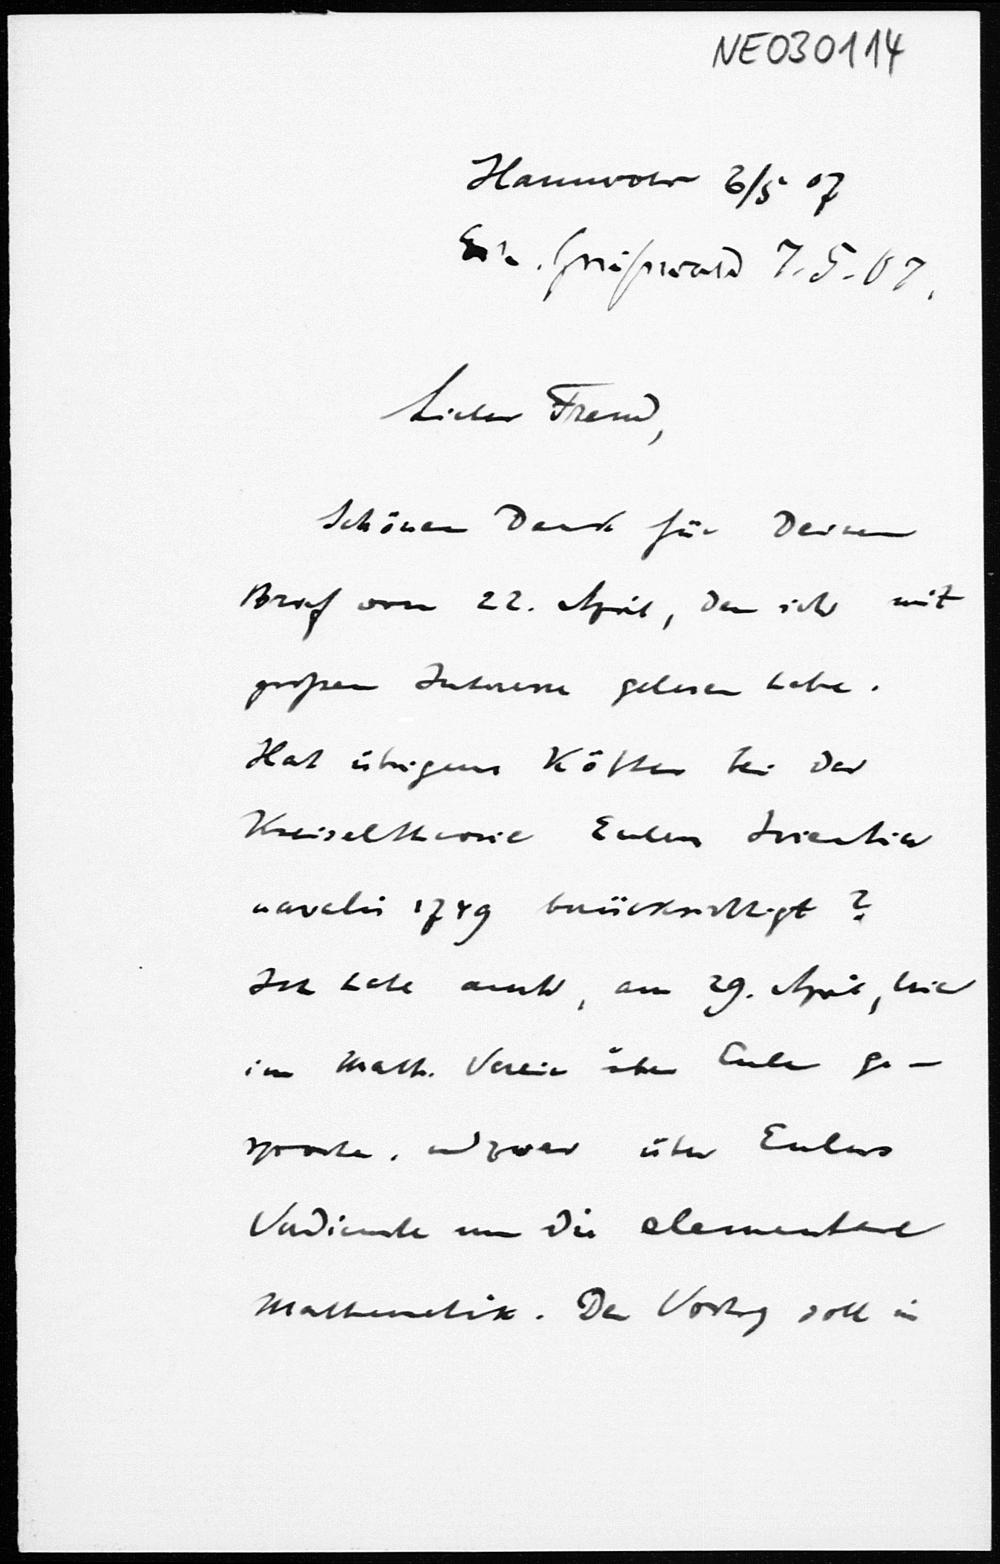 NE030114
Hannover 6/5 07
Greifswald 7.5.07.
Lieber Freund,
Schönen Dank für Deinen
Brief vom 22. April, den ich mit
großem Interesse gelesen habe.
Hat übrigens Kötter bei der
Kreiseltheorie Eulers Scientia
navalis 1749 berücksichtigt?
Ich habe auch, am 29. April, hier
im Math. Verein über Euler ge-
sprochen, und zwar über Eulers
Verdienste um die elementare
Mathematik. Der Vortrag soll in